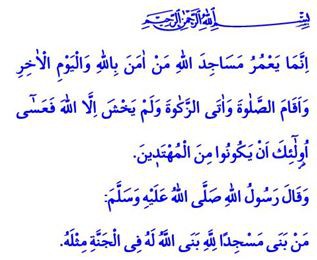 بِسْمِ اللّٰهِ الرَّحْمٰنِ الرَّحِيمِ
اِنَّمَا يَعْمُرُ مَسَاجِدَ اللّٰهِ مَنْ اٰمَنَ بِاللّٰهِ وَالْيَوْمِ الْاٰخِرِ
وَاَقَامَ الصَّلٰوةَ وَاٰتَى الزَّكٰوةَ وَلَمْ يَخْشَ اِلَّا اللّٰهَ فَعَسٰٓى
اُو۬لٰٓئِكَ اَنْ يَكُونُوا مِنَ الْمُهْتَد۪ينَ.
وَقَالَ رَسُولُ اللّٰهِ صَلَّى اللّٰهُ عَلَيْهِ وَسَلَّمَ:
مَنْ بَنَى مَسْجِدًا لِلّٰهِ بَنَى اللّٰهُ لَهُ فِى الْجَنَّةِ مِثْلَهُ.